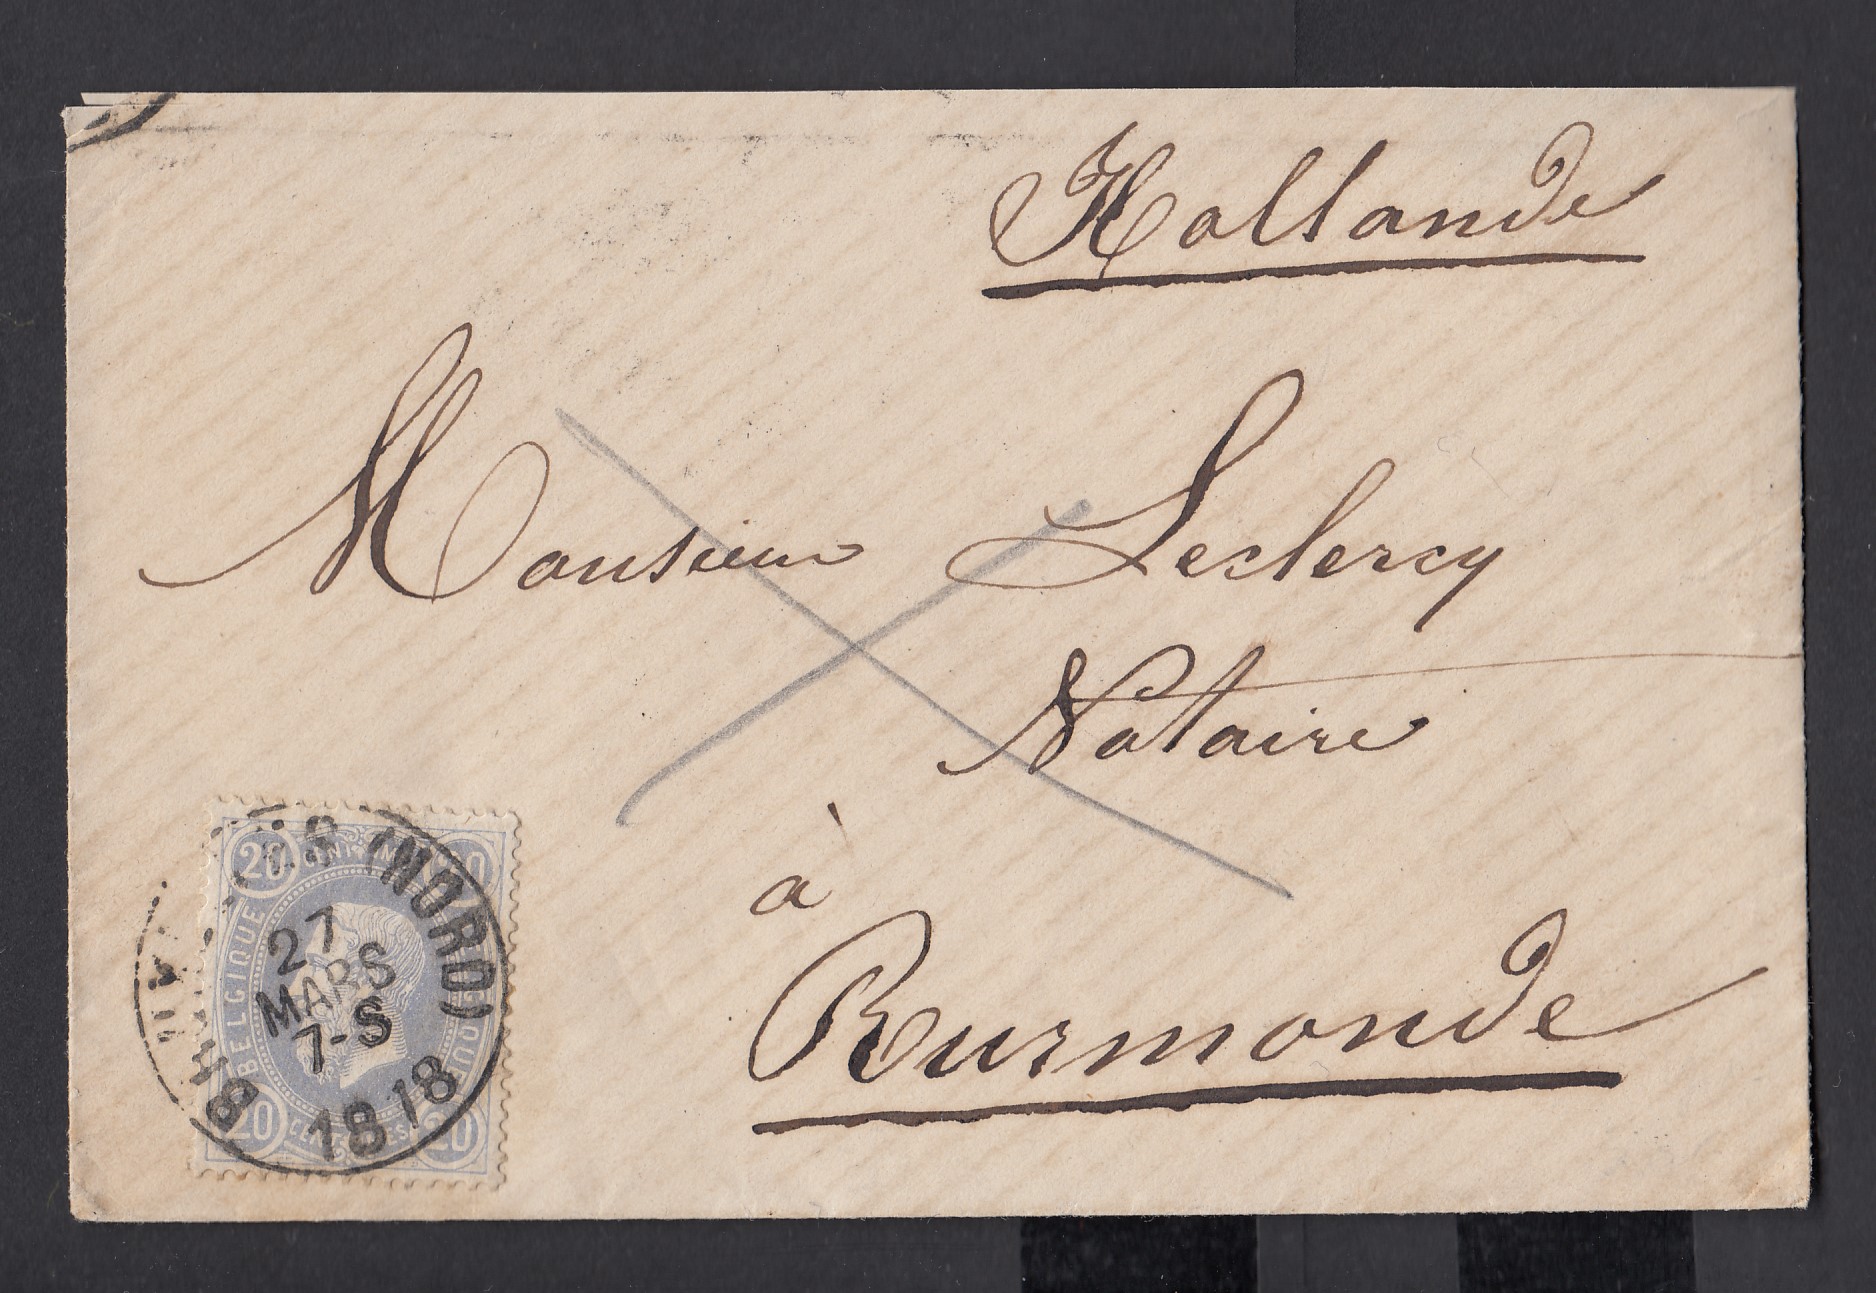 Hollande
Monsieur Leclercq
Notaire
à
Rurmonde
(NORD)
27
MARS
7-S
1818
20
BELGIQUE
20
20